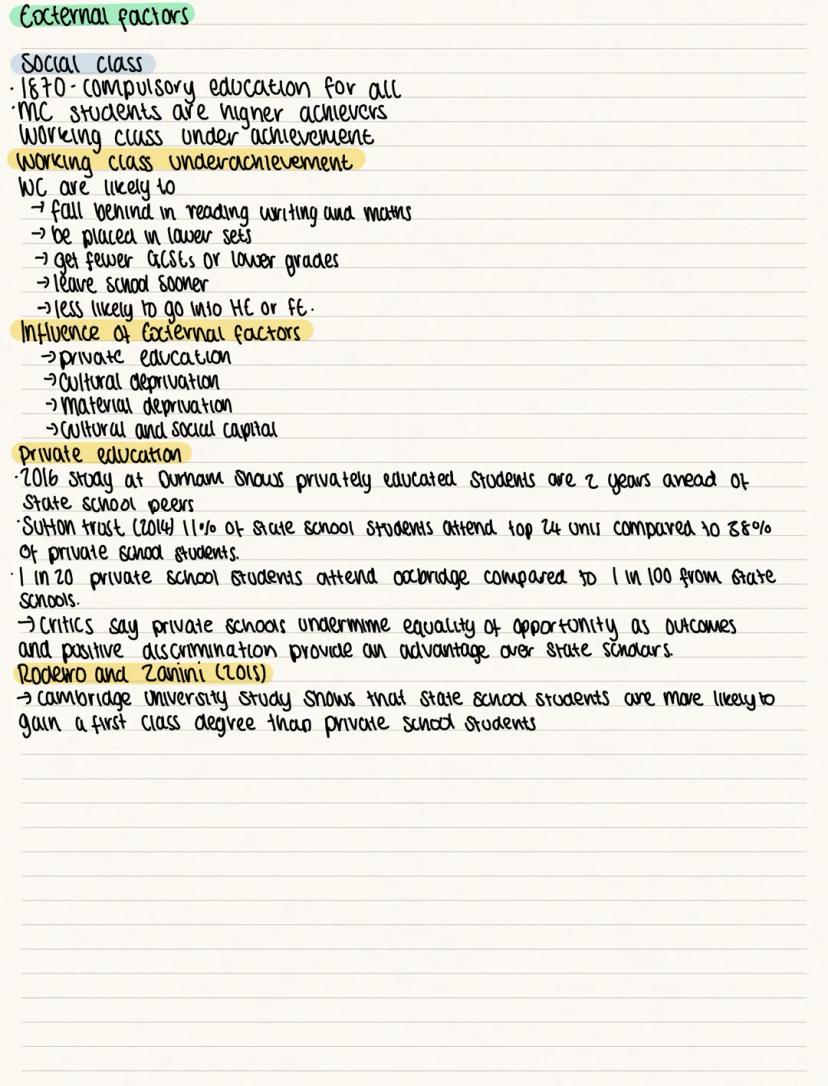 External factors
Social class
· 1870 - compulsory education for all
· MC students are higher achievers
Working class under achievement
Working class underachievement
WC are likely to
→ fall behind in reading writing and maths
→ be placed in lower sets
→ get fewer GCSEs or lower grades
→ leave school sooner
→ less likely to go into HE or FE.
Influence of External factors
→ private education
→ Cultural deprivation
→ Material deprivation
→ Cultural and social capital
Private education
· 2016 study at Durham shows privately educated students are 2 years ahead of
state school peers
· Sutton trust (2014) 11% of state school students attend top 24 unis compared to 38%
of private school students.
· 1 in 20 private school students attend oxbridge compared to 1 in 100 from state
schools.
→ Critics say private schools undermine equality of opportunity as outcomes
and positive discrimination provide an advantage over state scholars.
Rodeiro and Zanini (2015)
→ Cambridge University study shows that state school students are more likely to
gain a first class degree than private school students